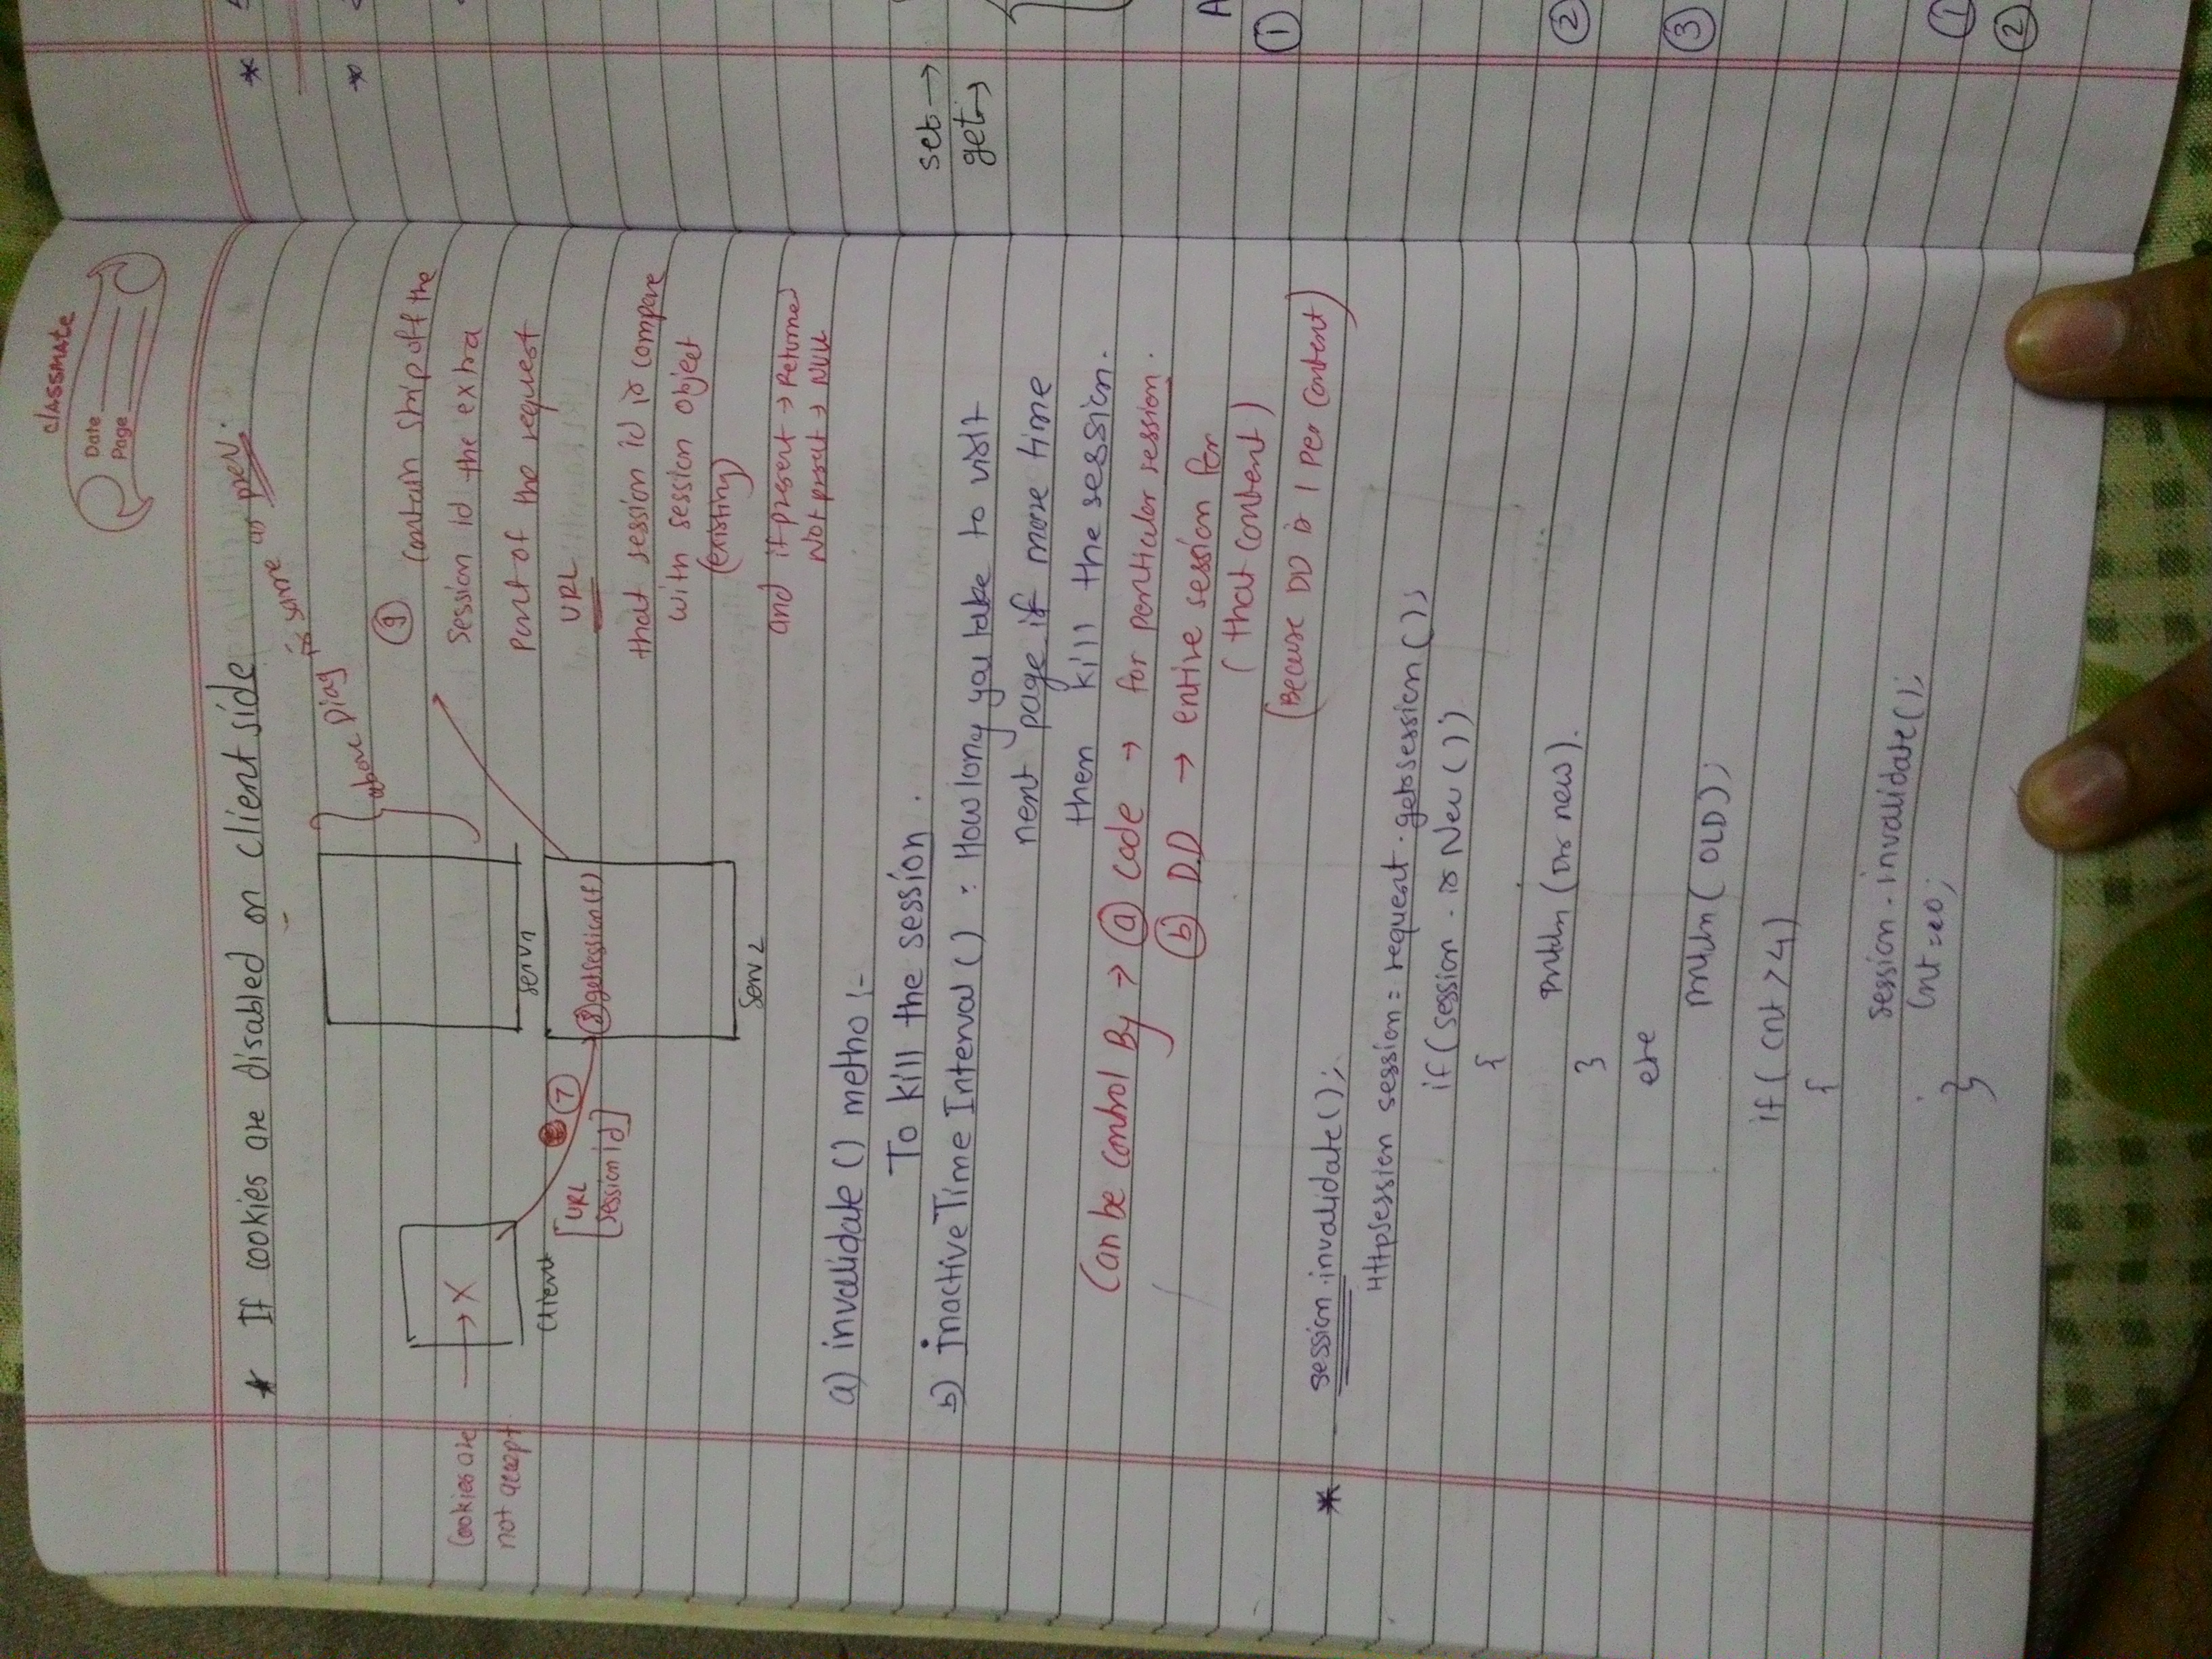 classmate
Date
Page
* If cookies are disabled on client side
above Diag is same as prev.
Cookies are
not accept
X
Client
Serv1
[URL
[session id]
7
8 getsession(f)
Serv 2
9 contain strip off the
session id the extra
part of the request
URL
that session id is compare
with session object
(existing)
and if present → Returned
Not presnt → NULL
a) invalidate () metho :-
To kill the session .
b) inactive Time Interval () : How long you take to visit
next page if more time
then kill the session.
Can be control By → a code → for particular session .
b D.D → entire session for
( that content )
(Because DD is 1 Per content)
* session.invalidate();
HttpSession session = request . getsession ( );
if ( session . is New ( ) )
{
println ( new ).
}
else
println ( OLD );
if ( cnt > 4 )
{
session . invalidate ( );
Cnt = 0;
}
*
*
set →
get →
A
1
2
3
1
2